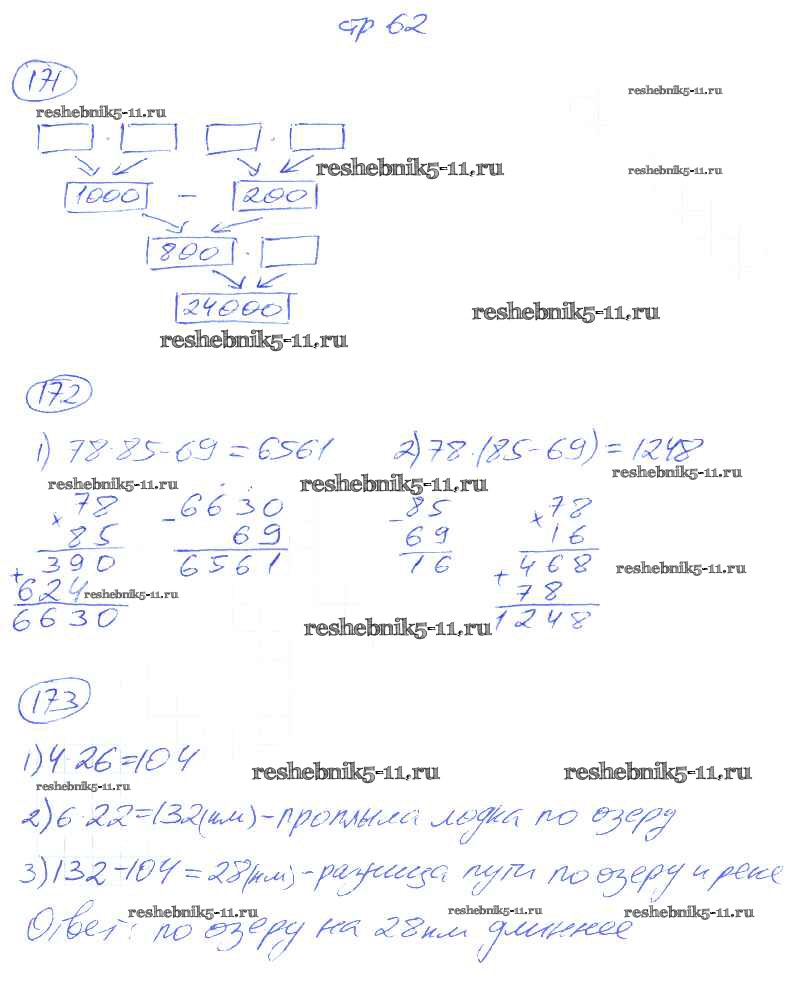 стр 62
171
reshebnik5-11.ru
reshebnik5-11.ru
· ·
reshebnik5-11.ru
reshebnik5-11.ru
1000 - 200
800 ·
24000
reshebnik5-11.ru
reshebnik5-11.ru
172
1) 78·85-69=6561 2) 78·(85-69)=1248
reshebnik5-11.ru
reshebnik5-11.ru
reshebnik5-11.ru
×78 -6630 -85 ×78
85 69 69 16
+390 6561 16 +468
reshebnik5-11.ru
624 78
reshebnik5-11.ru
6630 1248
reshebnik5-11.ru
173
1) 4·26=104
reshebnik5-11.ru
reshebnik5-11.ru
reshebnik5-11.ru
2) 6·22=132(км)-проплыла лодка по озеру
3) 132-104=28(км)-разница пути по озеру и реке
reshebnik5-11.ru
reshebnik5-11.ru
reshebnik5-11.ru
Ответ: по озеру на 28 км длиннее